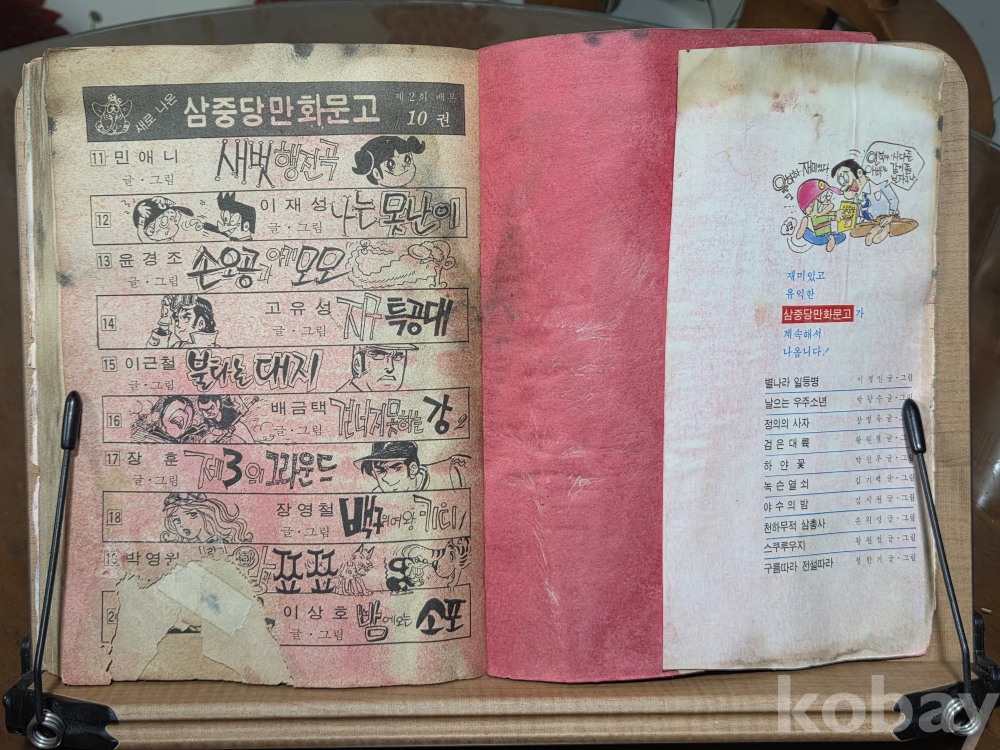 새로 나온
삼중당만화문고
제2회 배본
10권
11 민애니
글·그림
새벗 행진곡
12
이재성
글·그림
나는 못난이
13 윤경조
글·그림
손오공과 아기 모모
14
고유성
글·그림
특공대
15 이근철
글·그림
불타는 대지
16
배금택
글·그림
건너지 못하는 강
17 장훈
글·그림
제3의 그라운드
18
장영철
글·그림
백
19 박영원
표표
이상호
글·그림
밤에 오는 표소
재미있고
유익한
삼중당만화문고가
계속해서
나옵니다!
별나라 일등병 이정민 글·그림
날으는 우주소년 글·그림
정의의 사자 글·그림
검은 대륙 글·그림
하얀 꽃 글·그림
녹슨 열쇠 김기백 글·그림
야수의 밤 글·그림
천하무적 삼총사 손의성 글·그림
스쿠루우지 글·그림
구름따라 전설따라 정한기 글·그림
kobay